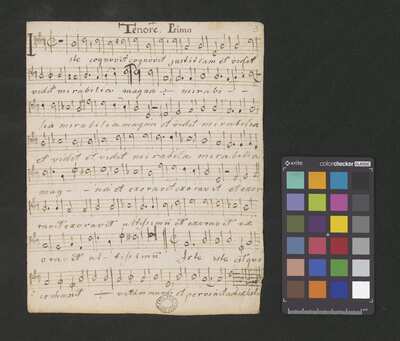 Tenore Primo
Iste cognovit cognovit justitiam et vidit
vidit mirabilia magna mirabi
lia mirabilia magna et vidit mirabilia
et vidit et vidit mirabilia mirabilia
mag na et exoravit exoravit et exor
ravit exoravit altissimũ et exoravit
oravit al tissimũ Iste iste est qui
x-rite colorchecker CLASSIC